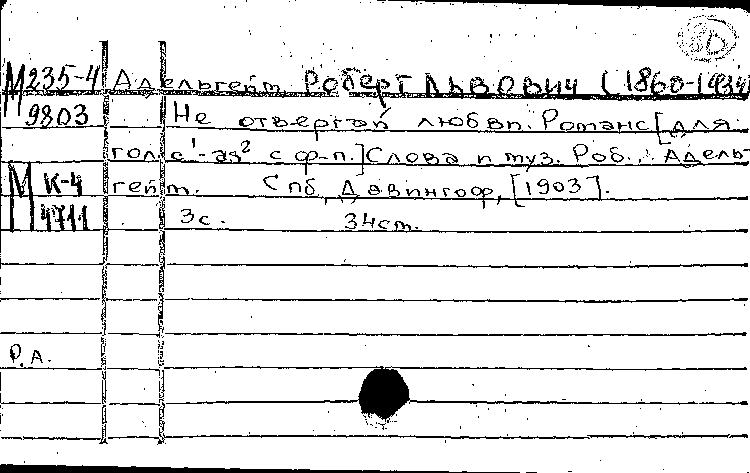 М 235-4 Адельгейм, Роберт Львович (1860-1934)
9803 Не отвергай любви. Романс [для
голоса c¹-as² с ф-п.] Слова и муз. Роб. Адель-
М К-4 гейм. Спб, Давингоф, [1903].
4711 3с. 34ст.
Р.А.